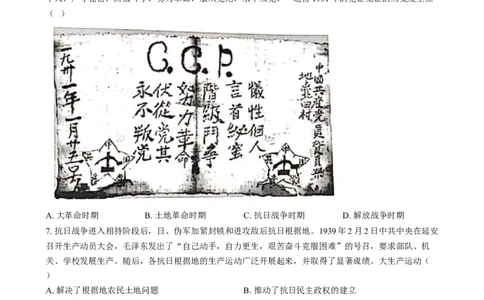 （ ）
C.C.P.
中國共產黨員
牺性個人
言首秘蜜
階級鬥爭
努力革命
伏從党其
永不叛党
一九卅一年一月廿五号
A. 大革命时期 B. 土地革命时期 C. 抗日战争时期 D. 解放战争时期
7. 抗日战争进入相持阶段后，日、伪军加紧封锁和进攻敌后抗日根据地。1939 年 2 月 2 日中共中央在延安
召开生产动员大会，毛泽东发出了“自己动手，自力更生，艰苦奋斗克服困难”的号召，要求部队、机
关、学校发展生产。随后，各抗日根据地的生产运动广泛开展起来，并取得了显著成绩。大生产运动（
）
A. 解决了根据地农民土地问题 B. 推动了抗日民主政权的建立